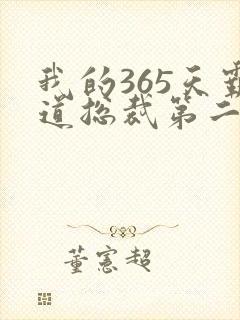 我的365天霸
道总裁第二
董宪超